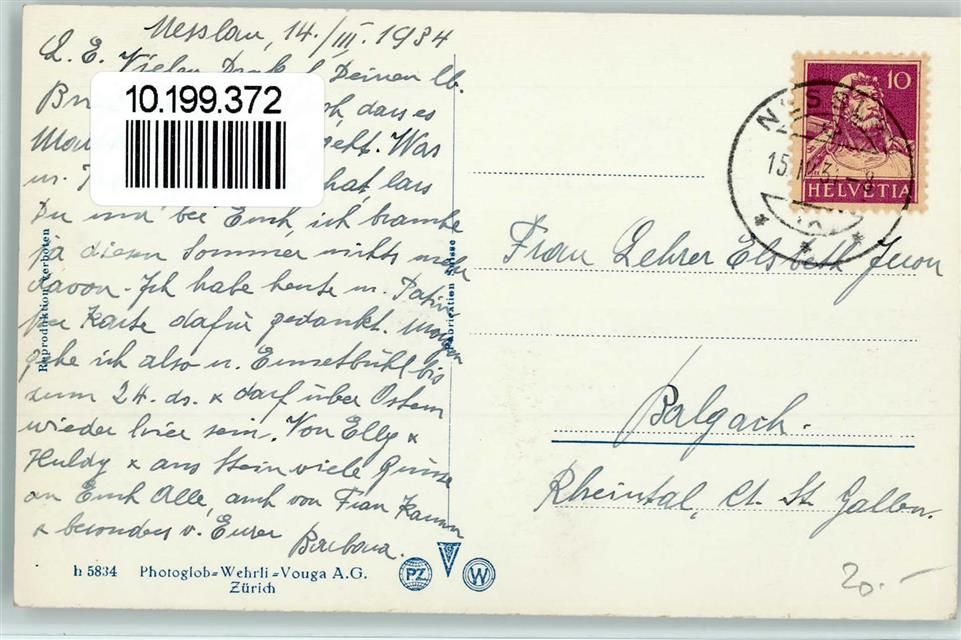 Nesslau, 14./III. 1934
L. E. Vielen Dank f. Deinen lb.
dass es
geht. Was
m. hat, lass
Du und bei Euch, ich brauche
ja diesen Sommer nichts mehr
davon. Ich habe heute m. Patin
per Karte dafür gedankt. Morgen
gehe ich also n. Ennetbühl bis
zum 24. ds. & darf über Ostern
wieder hier sein. Von Elly &
Huldy & aus Stein viele Grüsse
an Euch Alle, auch von Frau
& besonders v. Eurer
Barbara.
10.199.372
Reproduktion verboten
Fabrication Suisse
h 5834 Photoglob-Wehrli-Vouga A.G.
Zürich
PZ
W
10
HELVETIA
NESSLAU
Frau Lehrer Elsbeth Juon
Balgach.
Rheintal, Ct. St. Gallen.
20.-